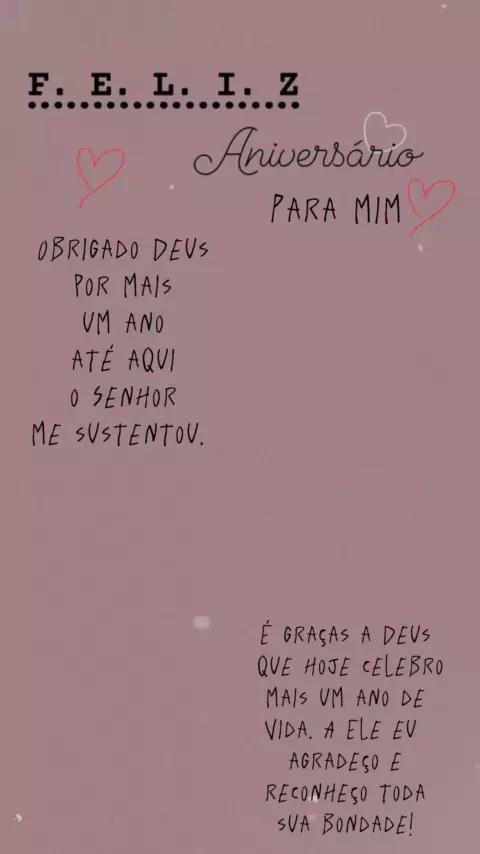 F. E. L. I. Z
Aniversário
PARA MIM
OBRIGADO DEUS
POR MAIS
UM ANO
ATÉ AQUI
O SENHOR
ME SUSTENTOU.
É GRAÇAS A DEUS
QUE HOJE CELEBRO
MAIS UM ANO DE
VIDA. A ELE EU
AGRADEÇO E
RECONHEÇO TODA
SUA BONDADE!